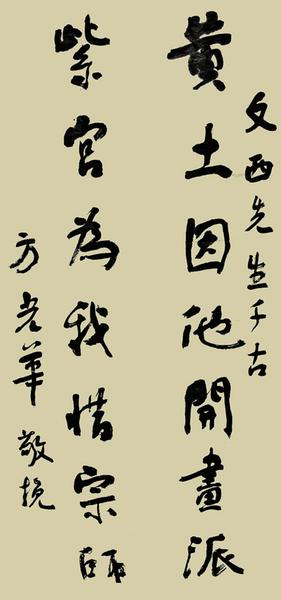 文西先生千古
黄土因他開畫派
紫宮為我惜宗師
方光華敬挽